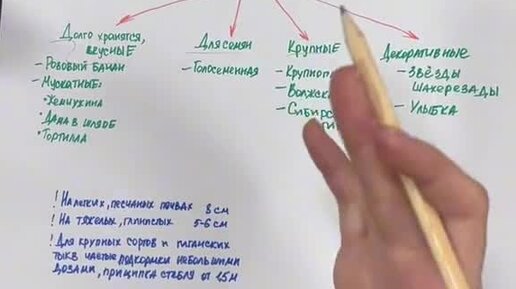 Долго хранятся,
вкусные
- Розовый банан
- Мускатные:
• Жемчужина
• Дама в шляпе
• Тортилла
Для семян
- Голосеменная
Крупные
- Крупнопл
- Волжск
- Сибирс
Декоративные
- Звёзды
Шахерезады
- Улыбка
! На легких, песчаных почвах 8 см
! На тяжелых, глинистых 5-6 см
! Для крупных сортов и гигантских
тыкв частые подкормки небольшими
дозами, прищипка стебля от 1,5 м